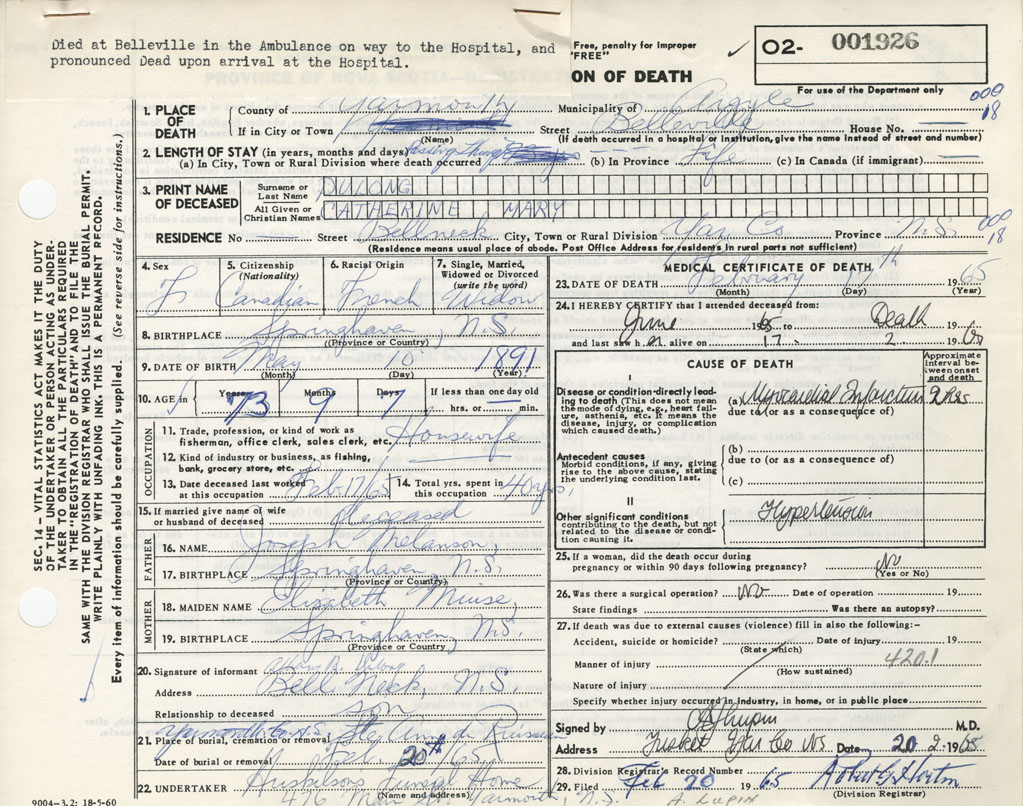 Died at Belleville in the Ambulance on way to the Hospital, and
pronounced Dead upon arrival at the Hospital.
Free, penalty for Improper
"FREE"
ON OF DEATH
O2- 001926
For use of the Department only
009
18
1. PLACE OF DEATH
County of Yarmouth Municipality of Argyle
If in City or Town (Name) Street Belleville House No.
(If death occurred in a hospital or institution, give the name instead of street and number)
2. LENGTH OF STAY (in years, months and days)
(a) In City, Town or Rural Division where death occurred (b) In Province Life (c) In Canada (if immigrant)
3. PRINT NAME OF DECEASED
Surname or Last Name DULONG
All Given or Christian Names CATHERINE MARY
RESIDENCE No Street Bellneck City, Town or Rural Division Yar Co Province N.S.
009
18
(Residence means usual place of abode. Post Office Address for residents in rural parts not sufficient)
4. Sex F
5. Citizenship (Nationality) Canadian
6. Racial Origin French
7. Single, Married, Widowed or Divorced (write the word) Widow
8. BIRTHPLACE Springhaven, N.S.
(Province or Country)
9. DATE OF BIRTH May 10 1891
(Month) (Day) (Year)
10. AGE in Years 73 Months 9 Days 7 If less than one day old hrs. or min.
OCCUPATION
11. Trade, profession, or kind of work as fisherman, office clerk, sales clerk, etc. Housewife
12. Kind of industry or business, as fishing, bank, grocery store, etc.
13. Date deceased last worked at this occupation Feb 17/65
14. Total yrs. spent in this occupation 40 yrs.
15. If married give name of wife or husband of deceased Deceased
FATHER
16. NAME Joseph Melanson,
17. BIRTHPLACE Springhaven, N.S.
(Province or Country)
MOTHER
18. MAIDEN NAME Elizabeth Muise,
19. BIRTHPLACE Springhaven, N.S.
(Province or Country)
20. Signature of informant
Address Bell Neck, N.S.
Relationship to deceased son
Yarmouth Co. N.S.
21. Place of burial, cremation or removal Ste Anne du Ruisseau
Date of burial or removal 20th
22. UNDERTAKER Funeral Home
(Name and address)
Yarmouth, N.S.
9004-3.2: 18-5-60
MEDICAL CERTIFICATE OF DEATH
23. DATE OF DEATH February 17th 1965
(Month) (Day) (Year)
24. I HEREBY CERTIFY that I attended deceased from:
June 1965 to Death 19
and last saw h alive on 17 2 19 65
CAUSE OF DEATH
Approximate interval between onset and death
I
Disease or condition directly leading to death (This does not mean the mode of dying, e.g., heart failure, asthenia, etc. It means the disease, injury, or complication which caused death.)
(a) Myocardial Infarction 2 hrs
due to (or as a consequence of)
Antecedent causes
Morbid conditions, if any, giving rise to the above cause, stating the underlying condition last.
(b)
due to (or as a consequence of)
(c)
II
Other significant conditions contributing to the death, but not related to the disease or condition causing it.
Hypertension
25. If a woman, did the death occur during pregnancy or within 90 days following pregnancy? No
(Yes or No)
26. Was there a surgical operation? No Date of operation 19
State findings Was there an autopsy?
27. If death was due to external causes (violence) fill in also the following:-
Accident, suicide or homicide? Date of injury 19
(State which)
Manner of injury 420.1
(How sustained)
Nature of injury
Specify whether injury occurred in industry, in home, or in public place
Signed by M.D.
Address Tusket Yar Co NS Date 20 2 1965
28. Division Registrar's Record Number
29. Filed Feb 20 1965 Robert G Horton
(Division Registrar)
A. LUPIN
SEC. 14 - VITAL STATISTICS ACT MAKES IT THE DUTY
OF THE UNDERTAKER OR PERSON ACTING AS UNDER-
TAKER TO OBTAIN ALL THE PARTICULARS REQUIRED
IN THE "REGISTRATION OF DEATH" AND TO FILE THE
SAME WITH THE DIVISION REGISTRAR WHO SHALL ISSUE THE BURIAL PERMIT.
WRITE PLAINLY WITH UNFADING INK. THIS IS A PERMANENT RECORD.
Every item of information should be carefully supplied. (See reverse side for instructions.)